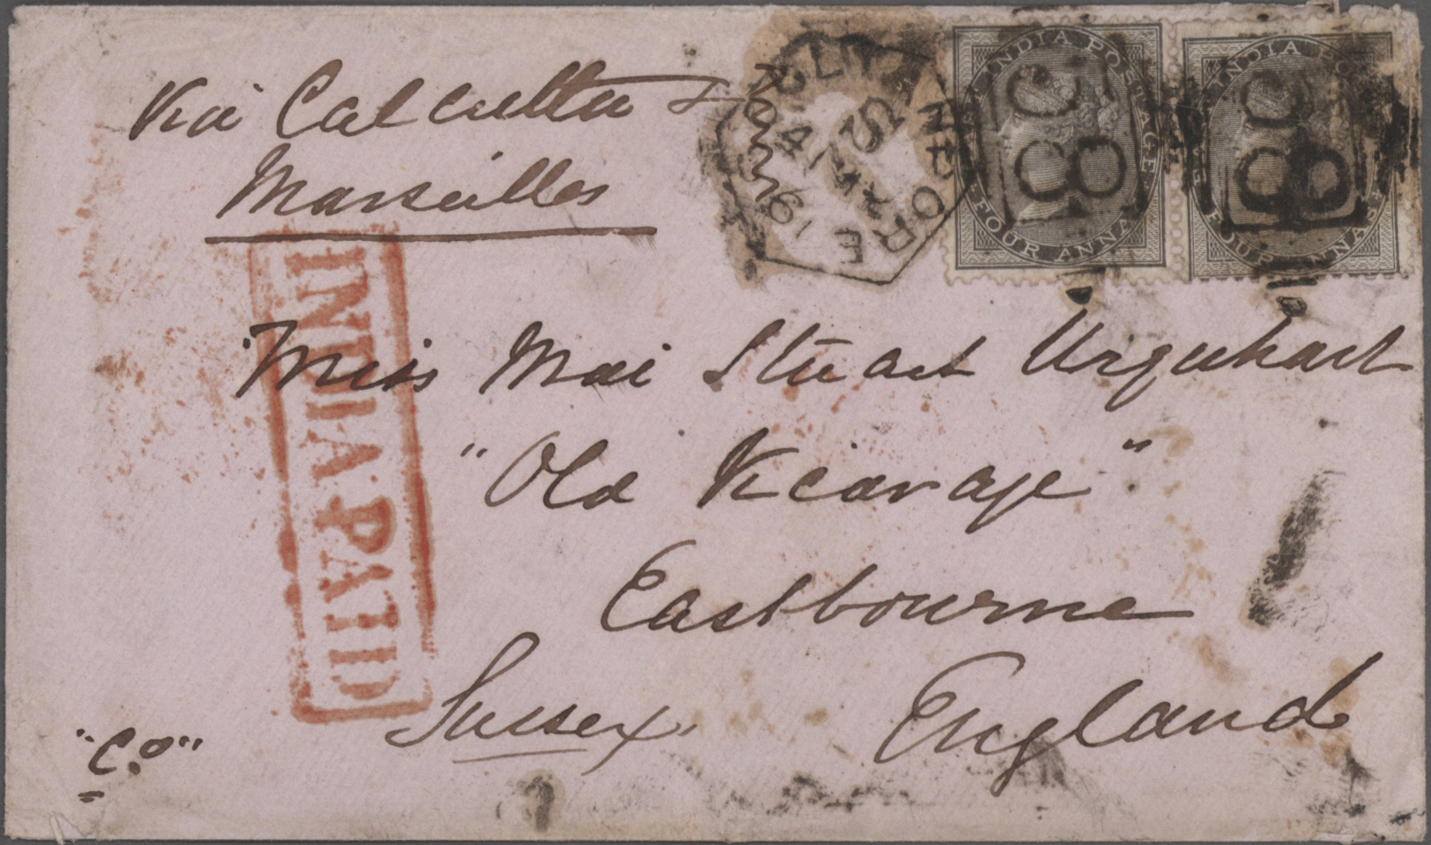 Via Calcutta &
Marseilles
INDIA PAID
INDIA POSTAGE
FOUR ANNAS
C
81
INDIA POSTAGE
FOUR ANNAS
Miss Mai Stuart Urquhart
"Old Vicarage"
Eastbourne
Sussex.
England
"C.O"